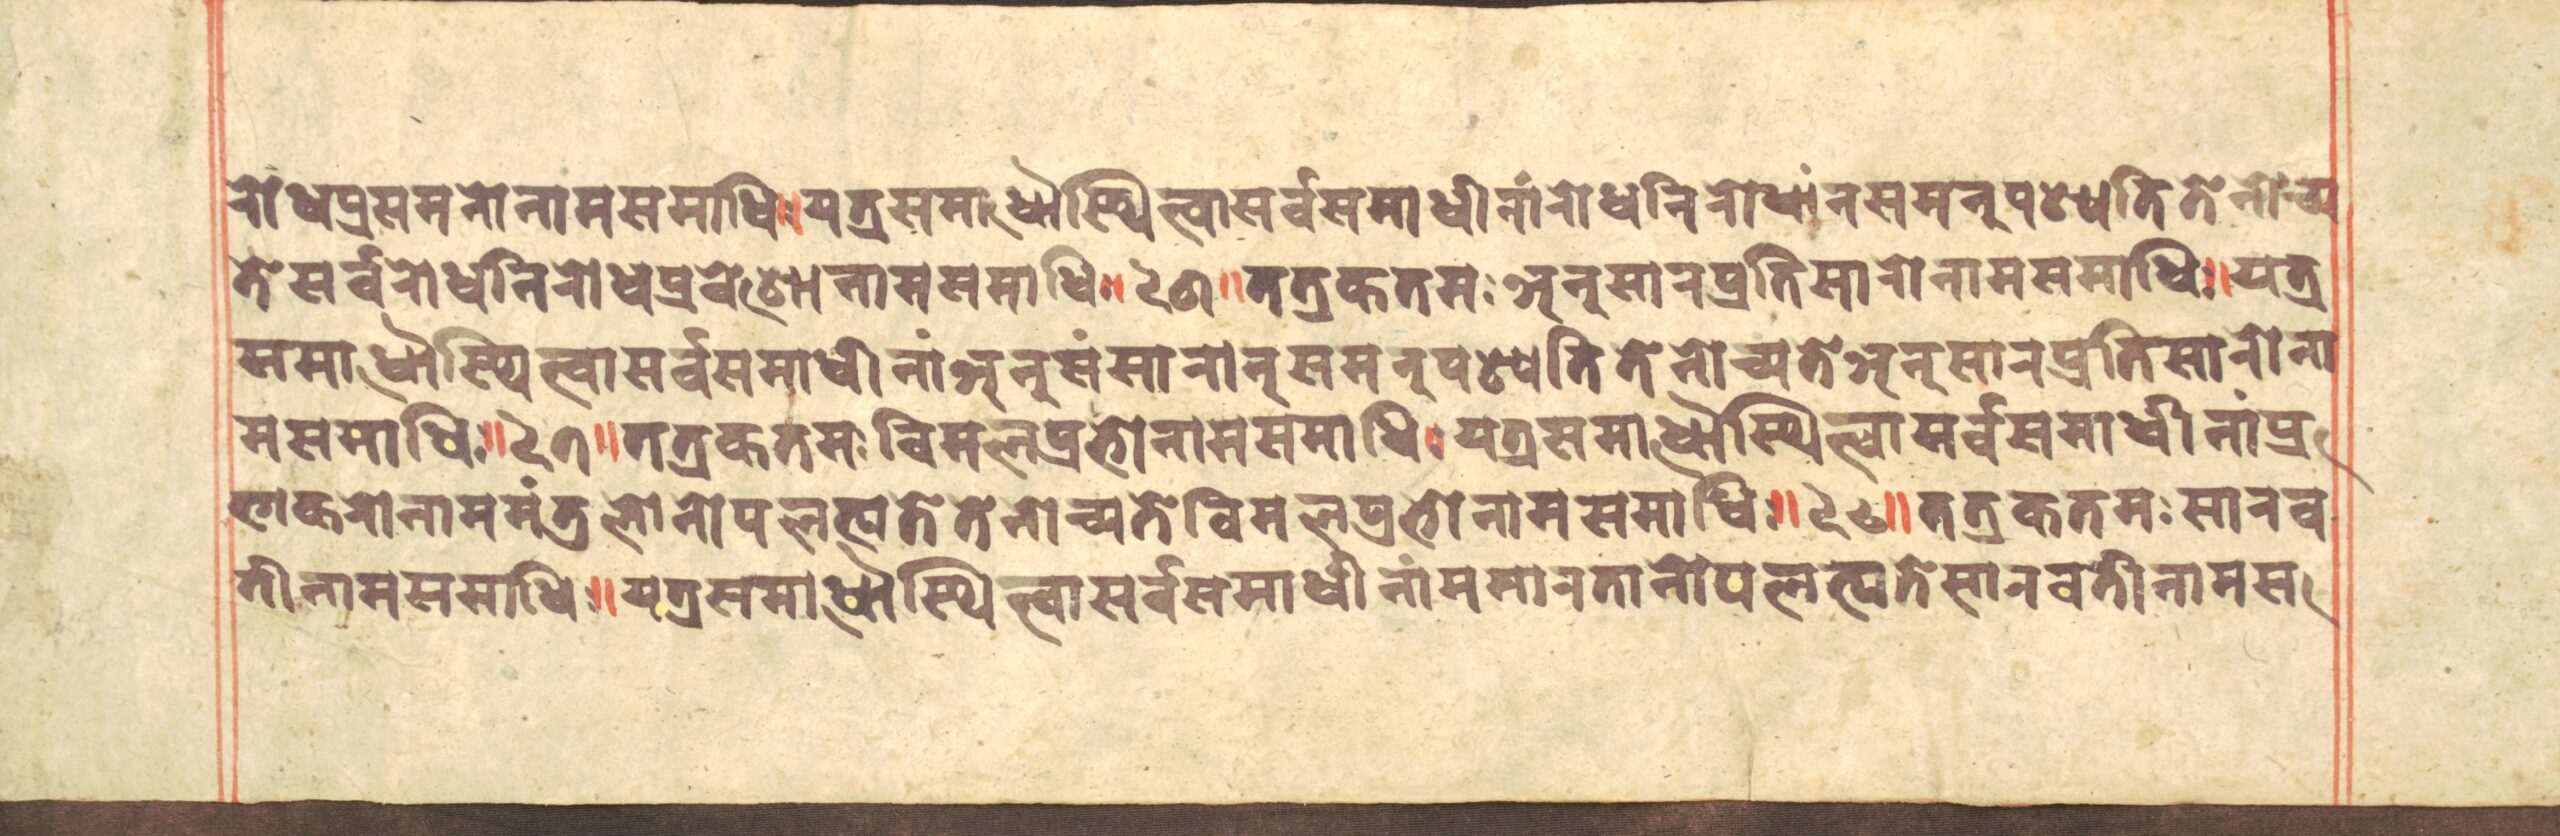 रोधप्रसमनो नाम समाधिः॥ यत्र समाधौ स्थित्वा सर्वसमाधीनां रोधनिरोधां न समनुपश्यति तेनोच्य
ते सर्वरोधनिरोधप्रवेशो नाम समाधिः॥ तत्र कतमः अनुसारप्रतिसारो नाम समाधिः॥ यत्र
समाधौ स्थित्वा सर्वसमाधीनां अनुसंसारान् समनुपश्यति तेनोच्यते अनुसारप्रतिसारो ना
म समाधिः॥ तत्र कतमः विमलप्रभो नाम समाधिः यत्र समाधौ स्थित्वा सर्वसमाधीनां प्र
भाकरो नाम मंतुलो नोपलभ्यते तेनोच्यते विमलप्रभो नाम समाधिः॥ तत्र कतमः सारव
ती नाम समाधिः॥ यत्र समाधौ स्थित्वा सर्वसमाधीनां मसारता नोपलभ्यते सारवती नाम स